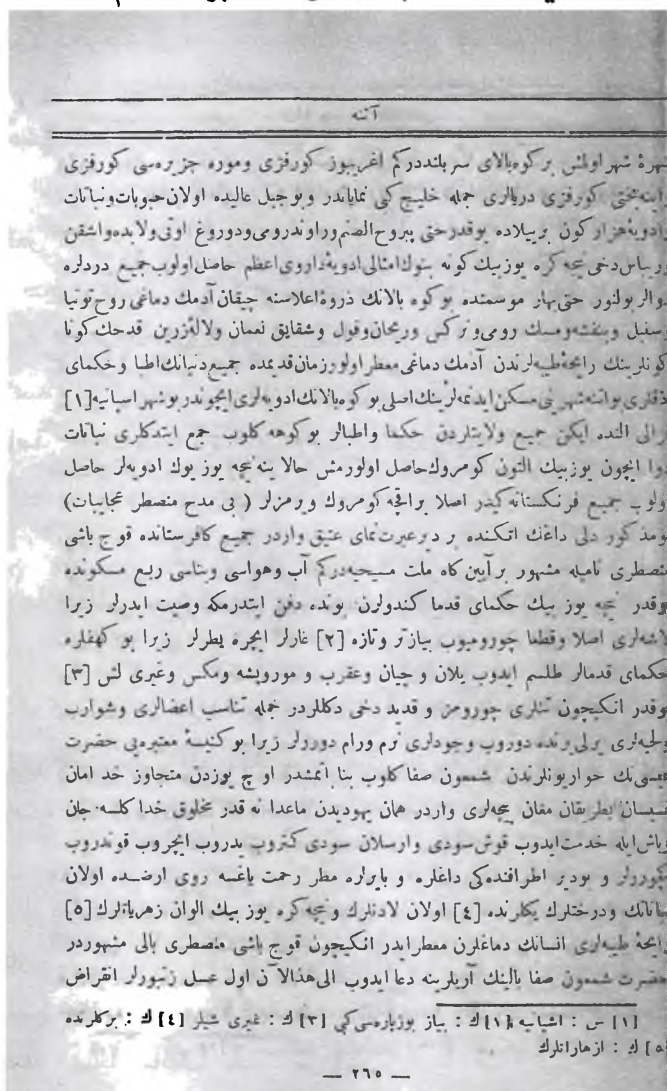 آتنه
شهرهٔ شهر اولمش بر كوه بالای سر بلنددركم اغریبوز كورفزی وموره جزیره‌سی كورفزی
اینه‌بختی كورفزی دریالری جمله خلیج كبی نمایاندر وبو جبل عالیده اولان حبوبات ونباتات
وادویهٔ هزار كون بر ییلاده یوقدر حتی یبروح الصنم وراوندرومی ودوروغ اوتی ولابده واشقن
وریباس دخی نیجه كره یوز بیك كونه بنوك امثالی ادویهٔ داروی اعظم حاصل اولوب جمیع دردلره
دوالر بولنور حتی بهار موسمنده بو كوه بالانك ذروهٔ اعلاسنه چیقان آدمك دماغی روح تونیا
وسنبل وبنفشه ومسك رومی ونركس وریحان وفول وشقایق نعمان ولالهٔ زرین قدحك كونا
كونلرینك رایحهٔ طیبه‌لرندن آدمك دماغی معطر اولور زمان قدیمده جمیع دنیانك اطبا وحكمای
ذقنلری بو اتنه شهرینی مسكن ایدنمه‌لرینك اصلی بو كوه بالانك ادویه‌لری ایچوندر بو شهر اسپانیه [١]
قرالی النده ایكن جمیع ولایتلردن حكما واطبالر بو كوهه كلوب جمع ایتدكلری نباتات
دوا ایچون یوز بیك التون كومروك حاصل اولورمش حالا ینه نیجه یوز یوك ادویه‌لر حاصل
اولوب جمیع فرنكستانه كیدر اصلا بر اقچه كومروك ویرمزلر ( بی مدح منصطر عجایبات)
بو مذكور دلی داغك اتكنده بر دیر عبرتنمای عتیق واردر جمیع كافرستانده قوج باشی
منصطری نامیله مشهور بر آیین كاه ملت مسیحیه‌دركم آب وهواسی وبناسی ربع مسكونده
یوقدر نیجه یوز بیك حكمای قدما كندولرن بونده دفن ایتدرمكه وصیت ایدرلر زیرا
لاشه‌لری اصلا وقطعا چورومیوب بیاز تر وتازه [٢] غارلر ایچره یطرلر زیرا بو كهفلره
حكمای قدمالر طلسم ایدوب یلان و چیان وعقرب و مورویشه ومكس وغیری لش [٣]
یوقدر انكیچون تنلری چورومز و قدید دخی دكللردر جمله تناسب اعضالری وشوارب
ولحیه‌لری یرلی یرنده دوروب وجودلری نرم ورام دورر‌لر زیرا بو كنیسهٔ معتبره‌یی حضرت
عیسی‌نك حواریونلرندن شمعون صفا كلوب بنا اتمشدر او چ یوزدن متجاوز خدامان
قسیسان بطریقان مغان بچه‌لری واردر همان یهودیدن ماعدا نه قدر مخلوق خدا كلسه جان
وباش ایله خدمت ایدوب قوش سودی وارسلان سودی كتروب یدروب ایچروب قوندروب
كوچورلر و بو دیر اطرافنده كی داغلره و بایرلره مطر رحمت یاغسه روی ارضده اولان
نباتانك ودرختلرك یكلرنده [٤] اولان لادنلرك ونیجه كره یوز بیك الوان زهریاتلرك [٥]
رایحهٔ طیبه‌لری انسانك دماغلرن معطر ایدر انكیچون قوج باشی منصطری بالی مشهوردر
حضرت شمعون صفا بالینك آریلرینه دعا ایدوب الی هذا الآن اول عسل زنبورلر انقراض
[١] س : اشپانیه [٢] ك : بیاز یوزپاره‌سی كبی [٣] ك : غیری شیلر [٤] ك : بركلرنده
[٥] ك : ازهاراتلرك
— ٢٦٥ —